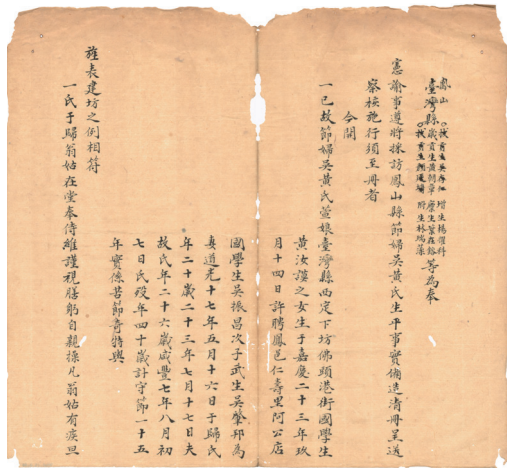 鳳山
臺灣縣
等為奉
憲諭事遵將採訪鳳山縣節婦吳黃氏生平事實備造清冊呈送
察核施行須至冊者
今開
一已故節婦吳黃氏萱娘臺灣縣西定下坊佛頭港街國學生
黃汝謨之女生于嘉慶二十三年玖
月十四日許聘鳳邑仁壽里阿公店
國學生吳振昌次子武生吳肇邦為
妻道光十七年五月十六日于歸氏
年二十歲二十三年七月十七日夫
故氏年二十六歲咸豐七年八月初
七日氏歿年四十歲計守節一十五
年實係苦節奇特與
旌表建坊之例相符
一氏于歸翁姑在堂奉侍維謹視膳躬自親操凡翁姑有疾旦